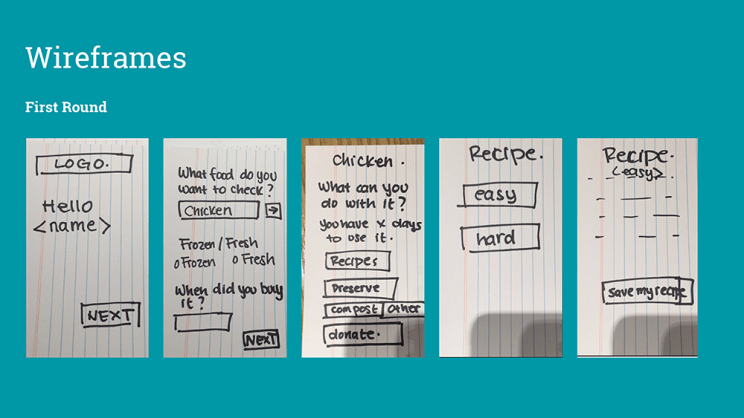 Wireframes
First Round
LOGO.
Hello
<name>
NEXT
What food do you
want to check?
Chicken →
Frozen / Fresh
o Frozen o Fresh
When did you buy
it?
NEXT
Chicken.
What can you
do with it?
You have x days
to use it.
Recipes
Preserve
compost other
donate.
Recipe.
easy
hard
Recipe.
<easy>
Save my recipe